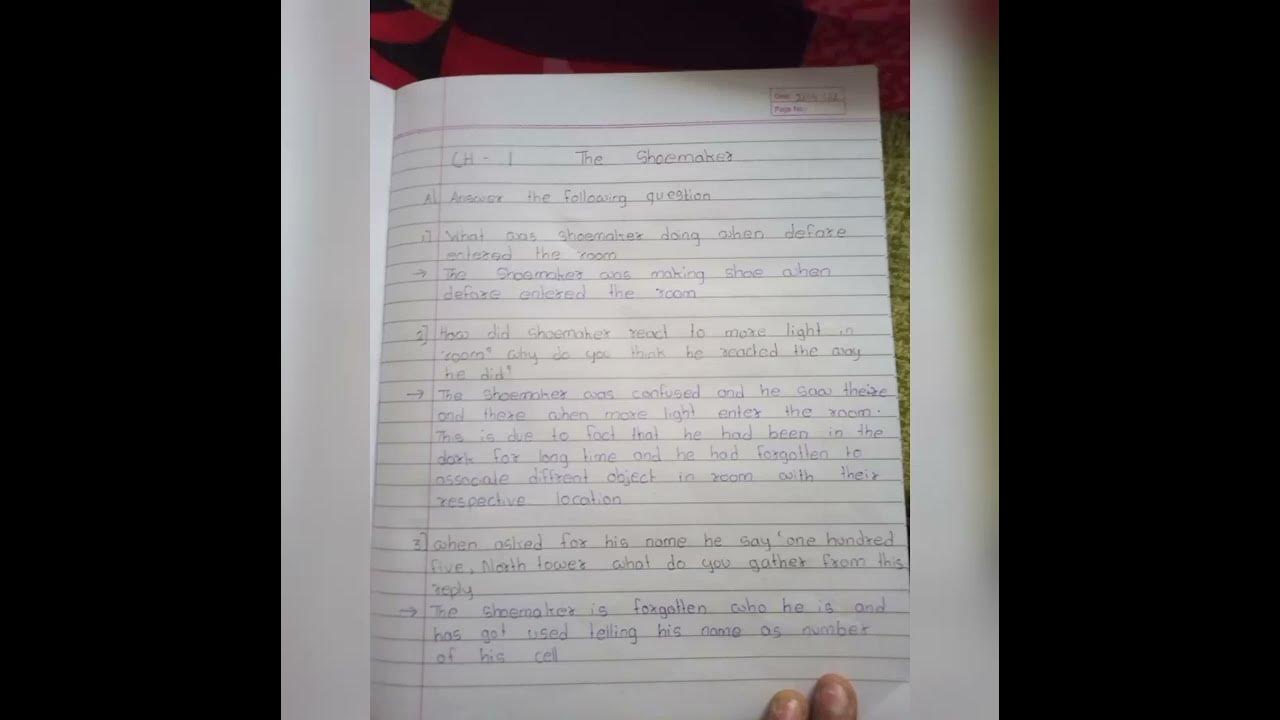 Date:
Page No.:
CH - 1 The Shoemaker
A] Answer the following question
1] What was shoemaker doing when defare
entered the room
→ The Shoemaker was making shoe when
defare entered the room
2] How did shoemaker react to more light in
room? why do you think he reacted the way
he did?
→ The shoemaker was confused and he saw theire
and there when more light enter the room.
This is due to fact that he had been in the
dark for long time and he had forgotten to
associate diffrent object in room with their
respective location
3] when asked for his name he say 'one hundred
five, North tower what do you gather from this
reply
→ The shoemaker is forgotten who he is and
has got used telling his name as number
of his cell